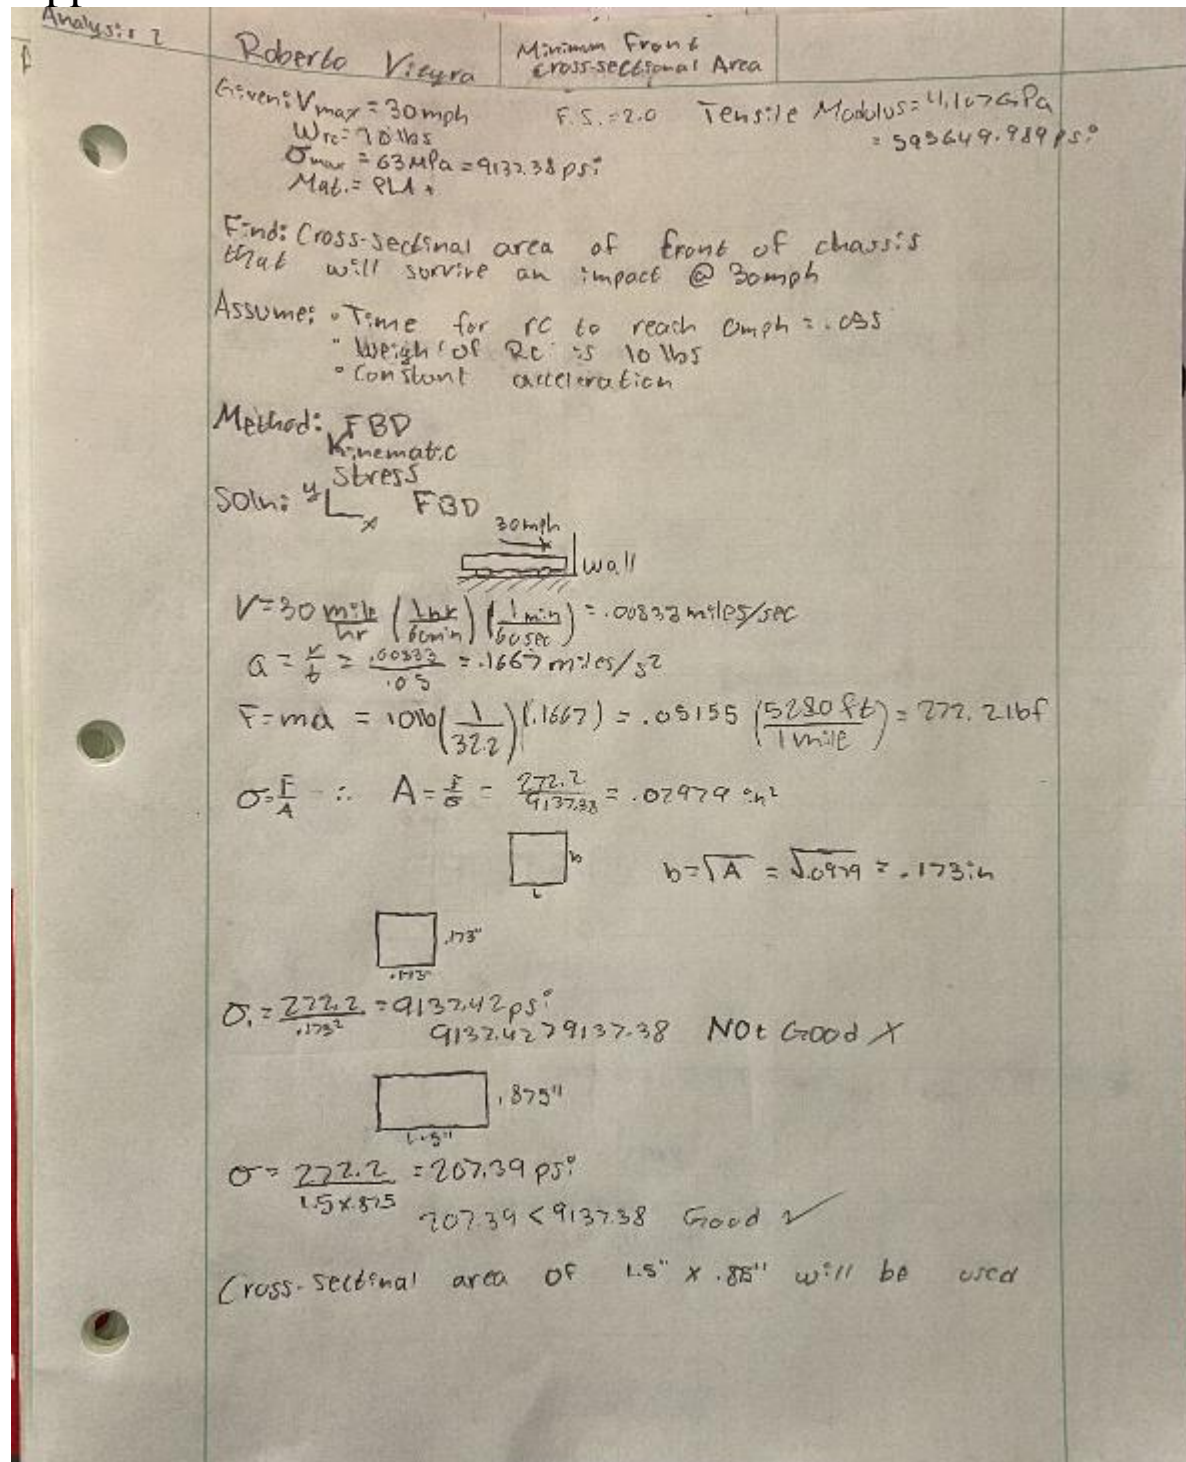 Analysis 2
Roberto Vieyra
Minimum Front
cross-sectional Area
Given: Vmax = 30mph F.S. = 2.0 Tensile Modulus = 4.107GPa
Wrc = 10 lbs = 595649.989 psi
σmax = 63 MPa = 9137.38 psi
Mat. = PLA +
Find: Cross-sectinal area of front of chassis
that will survive an impact @ 30mph
Assume: • Time for rc to reach 0mph = .05s
" Weigh of RC is 10 lbs
• Constant acceleration
Method: FBD
Kinematic
Stress
Soln: y x FBD
30mph
wall
V = 30 mile/hr (1hr/60min) (1min/60sec) = .00833 miles/sec
a = v/t = .00833/.05 = .1667 miles/s2
F = ma = 10lb (1/32.2) (.1667) = .05155 (5280ft/1mile) = 272.2 lbf
σ = F/A ∴ A = F/σ = 272.2/9137.38 = .02979 in²
b
b = √A = √.0979 = .173in
.173"
.173"
σ. = 272.2/.173² = 9137.42 psi
9137.42 > 9137.38 NOt Good X
.875"
1.5"
σ = 272.2/1.5x.875 = 207.39 psi
207.39 < 9137.38 Good ✓
Cross-sectinal area of 1.5" x will be used